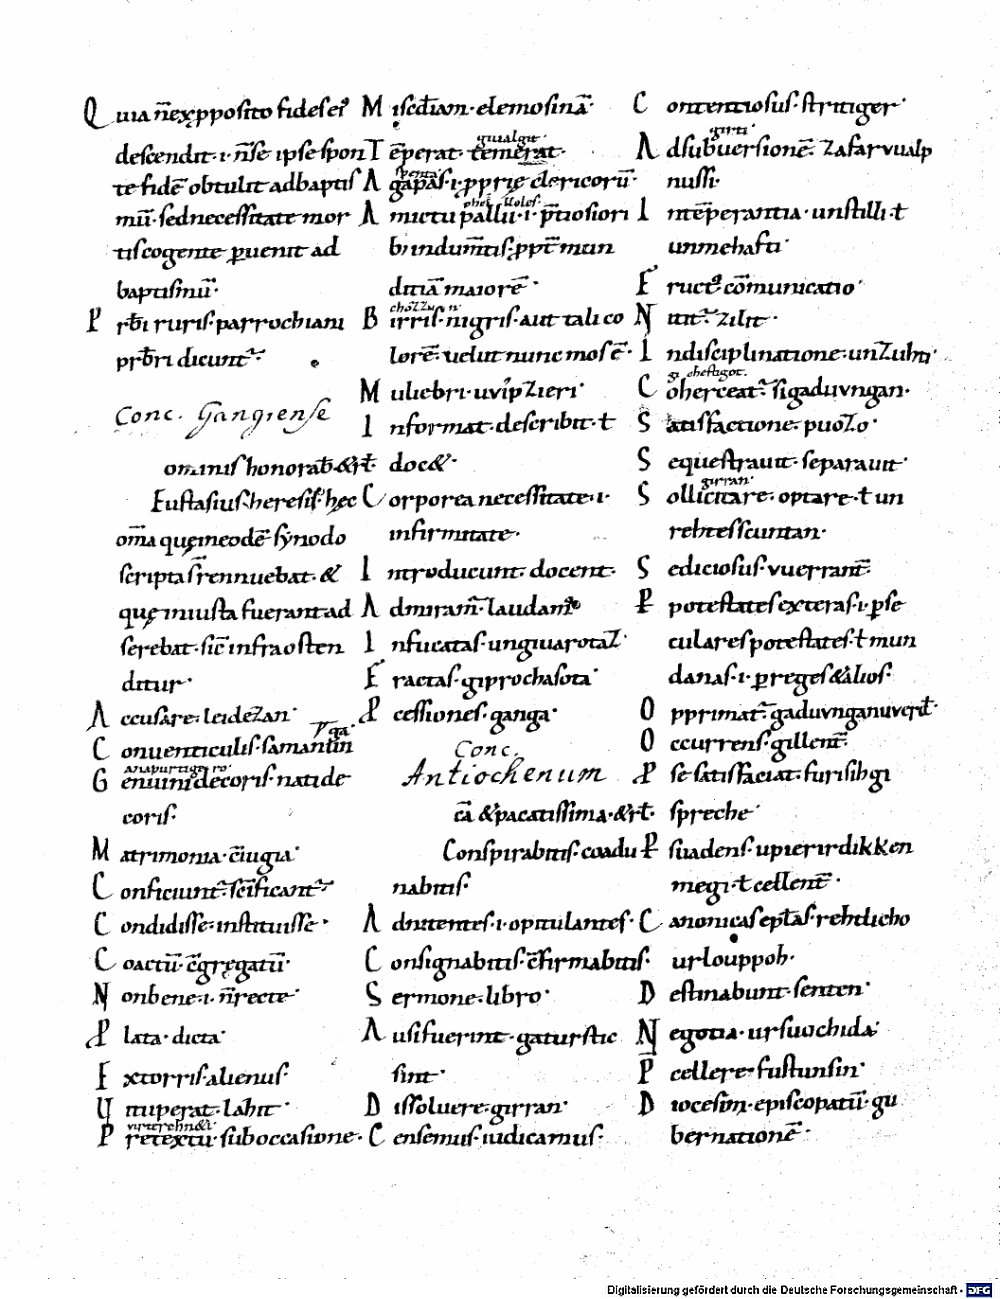 Quia n̄ exp̄posito fidei sei᷒
descendit .i. n̄ se ipse spon
te fidē obtulit ad baptis
mū. sed necessitate mor
tis cogente p̱uenit ad
baptismū.
Prb̄i ruris. parrochiani
prb̄ri dicunt᷒
Conc. Gangrense
ominis honorab̄ & rł
Eustasius. heresis. hęc
om̄a quę in eodē synodo
scripta s̄ rennuebat. &
quę iniusta fuerant ad
serebat. sic̄ infra osten
ditur.
Accusare. leidezan.
p̱ ga.
Conuenticulis. samantin
anapurtigero.
Genuini decoris. natide
coris.
Matrimonia. c̄iugia.
Conficiunt᷒. sc̄ificant᷒
Condidisse. instituisse.
Coactū. c̄gręgatū.
Non bene .i. n̄ recte.
Plata. dicta.
Extorris alienus.
Uituperat. lahit.
virtrehn&i.
Pretextu. sub occasione.
Misc̄diam. elemosinā.
gualgit.
Tēperat. temerat.
spenta
Agapas .i. p̱prię clericorū.
phel. ł loles.
Amictu pallii .i. p̄tiosiori
b; indum̄tis. ppt̄ mun
ditiā maiorē.
chozzun.
Birris. nigris. aut tali co
lorē. uelut nunc mos ē.
Muliebri. uvipzieri.
Informat. describit. ł
doc&.
Corporea necessitate .i.
infirmitate.
Introducunt. docent.
Admiram̄. laudam᷒
Infucatas. unguarotaz.
Fractas. giprochasota.
Pcessiones. ganga.
Conc.
Antiochenum
cā & pacatissima. & rł.
Conspirabitis. coadu
nabitis.
Adnitentes .i. opitulantes.
Consignabitis. c̄firmabitis.
Sermone. libro.
Ausi fuerint. gaturstic
sint.
Dissoluere. girran.
Censemus. iudicamus.
Contentiosus. stritiger.
girti.
Ad subuersionē. zafarvualp
nussi.
Intēperantia. unstilli. ł
unmehafti.
Fruct᷒ cōmunicatio.
Nitit᷒. zilit.
Indisciplinatione. unzuhti.
gi chestigot.
Coherceat᷒. sigaduvngan.
Satisfactione. puozo.
Sequestrauit. separauit.
girran.
Sollicitare. optare. ł un
rehtes scuntan.
Sediciosus. vuerrant᷒.
P̱ potestates exteras .i. p̱ se
culares potestates. ł mun
danas .i. p̱ reges & alios.
Opprimat᷒. gaduvngan uverd̄.
Occurrens. gillent᷒.
P̱ se satisfaciat. fur sih gi
spreche.
P̱suadens. upier irdikken
megi. ł cellent᷒.
Canonicas ep̄tas. rehtlicho
urlouppoh.
Destinabunt. senten.
Negotia. ursuochida.
P̄cellere. fustunsin.
Diocesim. episcopatū. gu
bernationē.
Digitalisierung gefördert durch die Deutsche Forschungsgemeinschaft - DFG